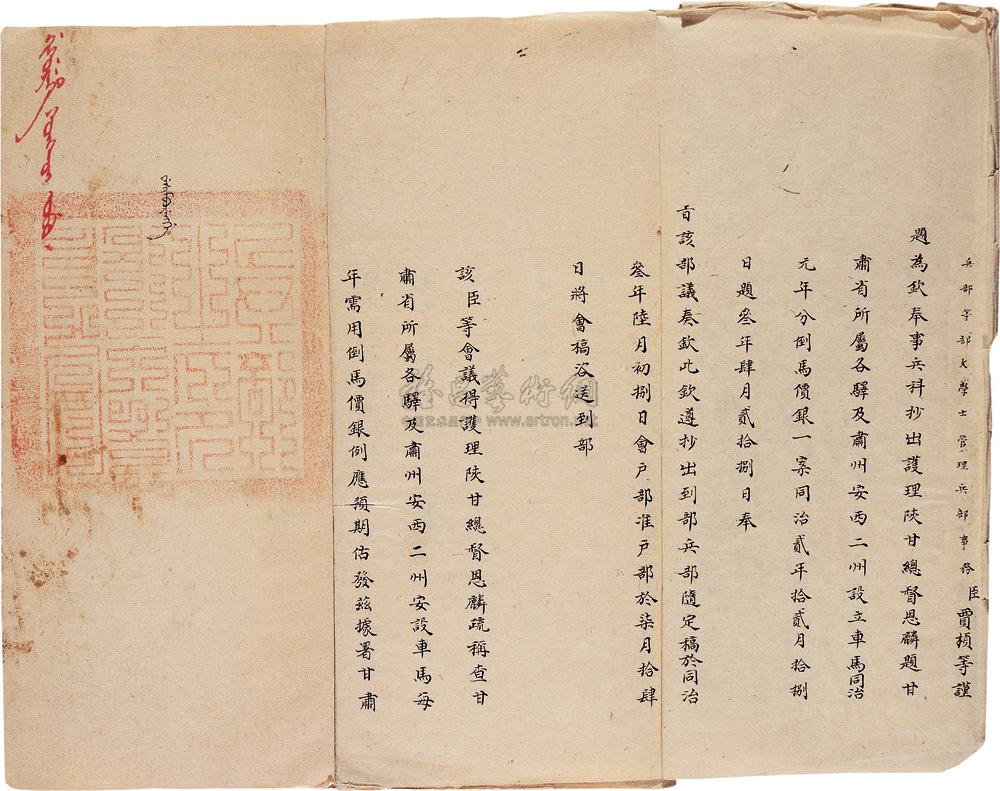 兵部等部大學士管理兵部事務臣賈楨等謹
題為欽奉事兵科抄出護理陝甘總督恩麟題甘
肅省所屬各驛及肅州安西二州設立車馬同治
元年分倒馬價銀一案同治貳年拾貳月拾捌
日題叁年肆月貳拾捌日奉
旨該部議奏欽此欽遵抄出到部兵部隨定稿於同治
叁年陸月初捌日會戶部准戶部於柒月拾肆
日將會稿咨送到部
該臣等會議得護理陝甘總督恩麟疏稱查甘
肅省所屬各驛及肅州安西二州安設車馬每
年需用倒馬價銀例應預期估發茲據署甘肅
www.artron.net